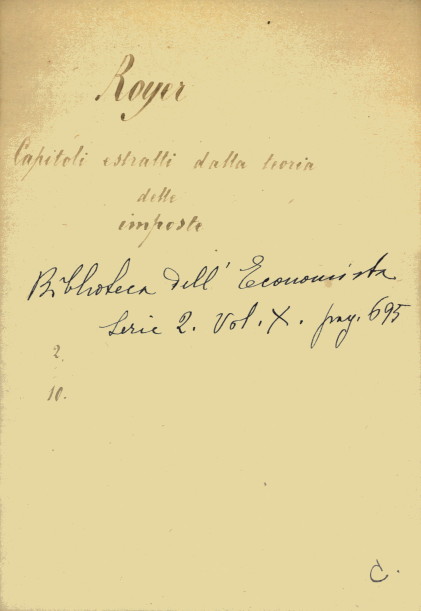 Royer
Capitoli estratti dalla teoria
delle
imposte
Biblioteca dell' Economista
Serie 2. Vol. X. pag. 695
2.
10.
C.